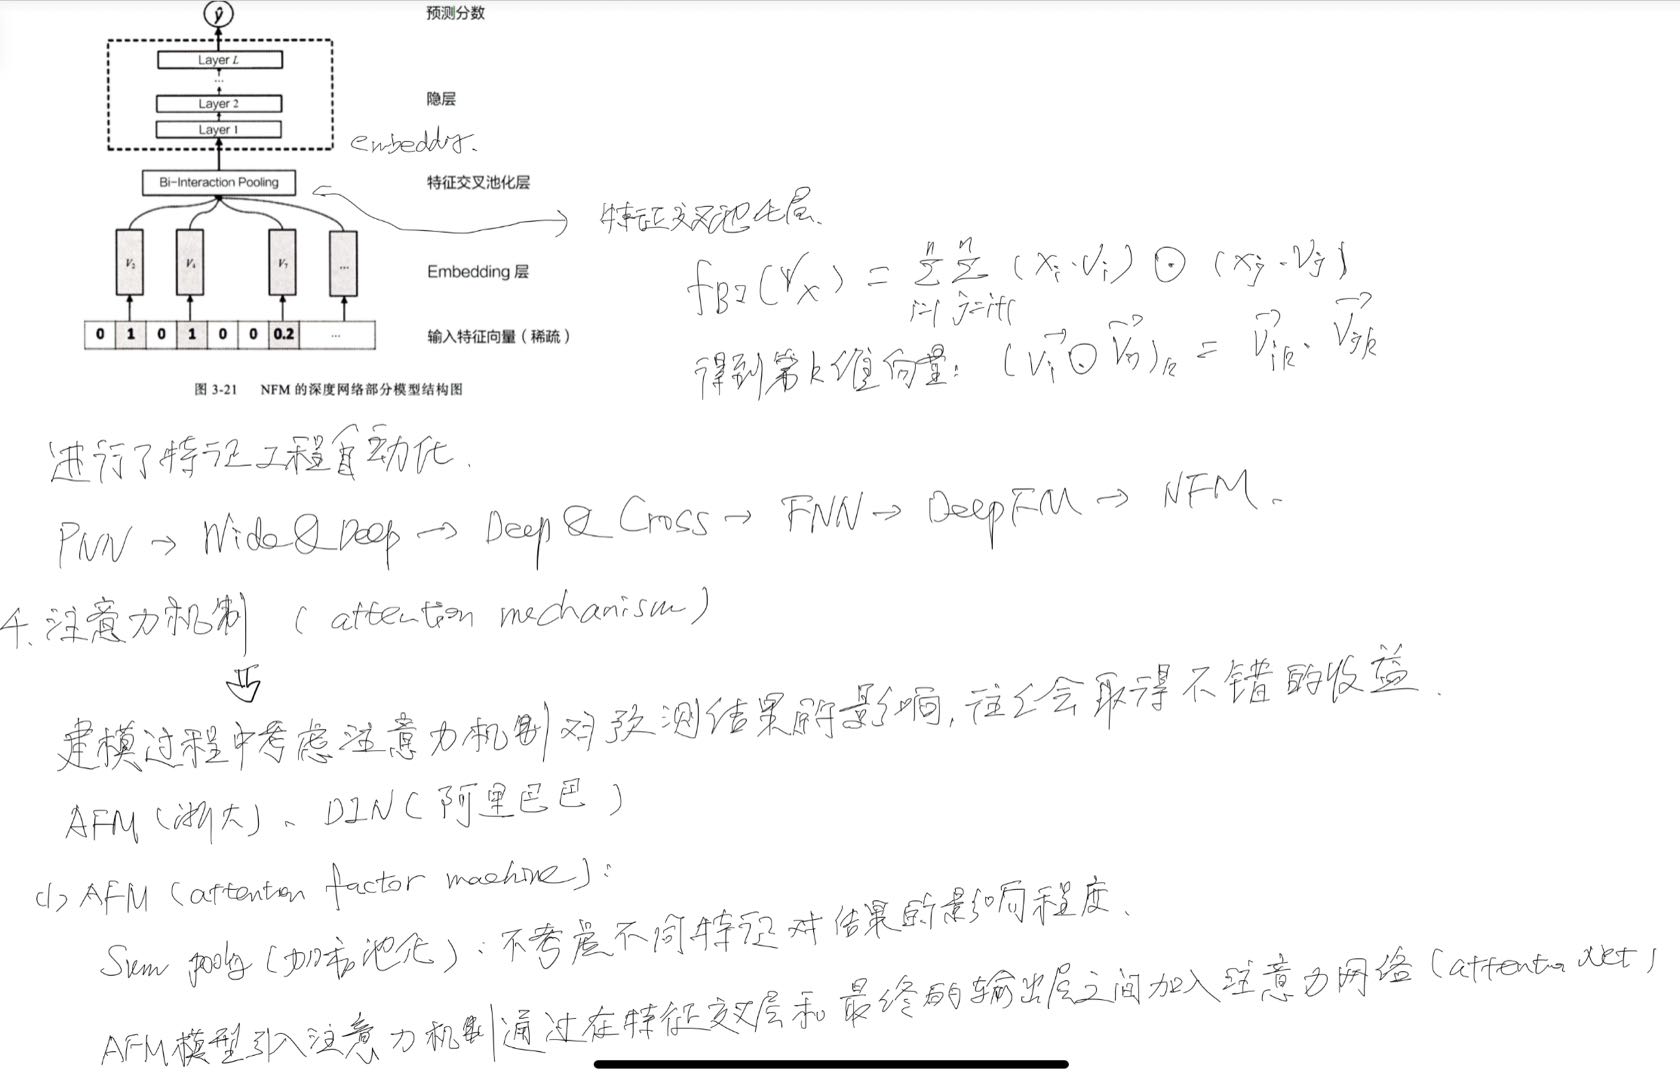 ŷ 预测分数
Layer L
...
Layer 2 隐层
Layer 1
embedding.
Bi-Interaction Pooling 特征交叉池化层
特征交叉池化层.
V₂ V₄ V₇ ... Embedding 层
f_BI(V_x) = Σ_{i=1}^{n} Σ_{j=i+1}^{n} (x_i·v_i) ⊙ (x_j·v_j)
0 1 0 1 0 0 0.2 ... 输入特征向量（稀疏）
得到第k维向量: (v_i ⊙ v_j)_k = v_ik · v_jk
图 3-21 NFM 的深度网络部分模型结构图
进行了特征工程自动化.
PNN → Wide&Deep → Deep & Cross → FNN → DeepFM → NFM.
4. 注意力机制 (attention mechanism)
建模过程中考虑注意力机制对预测结果的影响,往往会取得不错的收益.
AFM(浙大)、DIN(阿里巴巴)
(1) AFM (attention factor machine):
Sum pooling (加和池化): 不考虑不同特征对结果的影响程度.
AFM模型引入注意力机制通过在特征交叉层和最终的输出层之间加入注意力网络(attention Net)